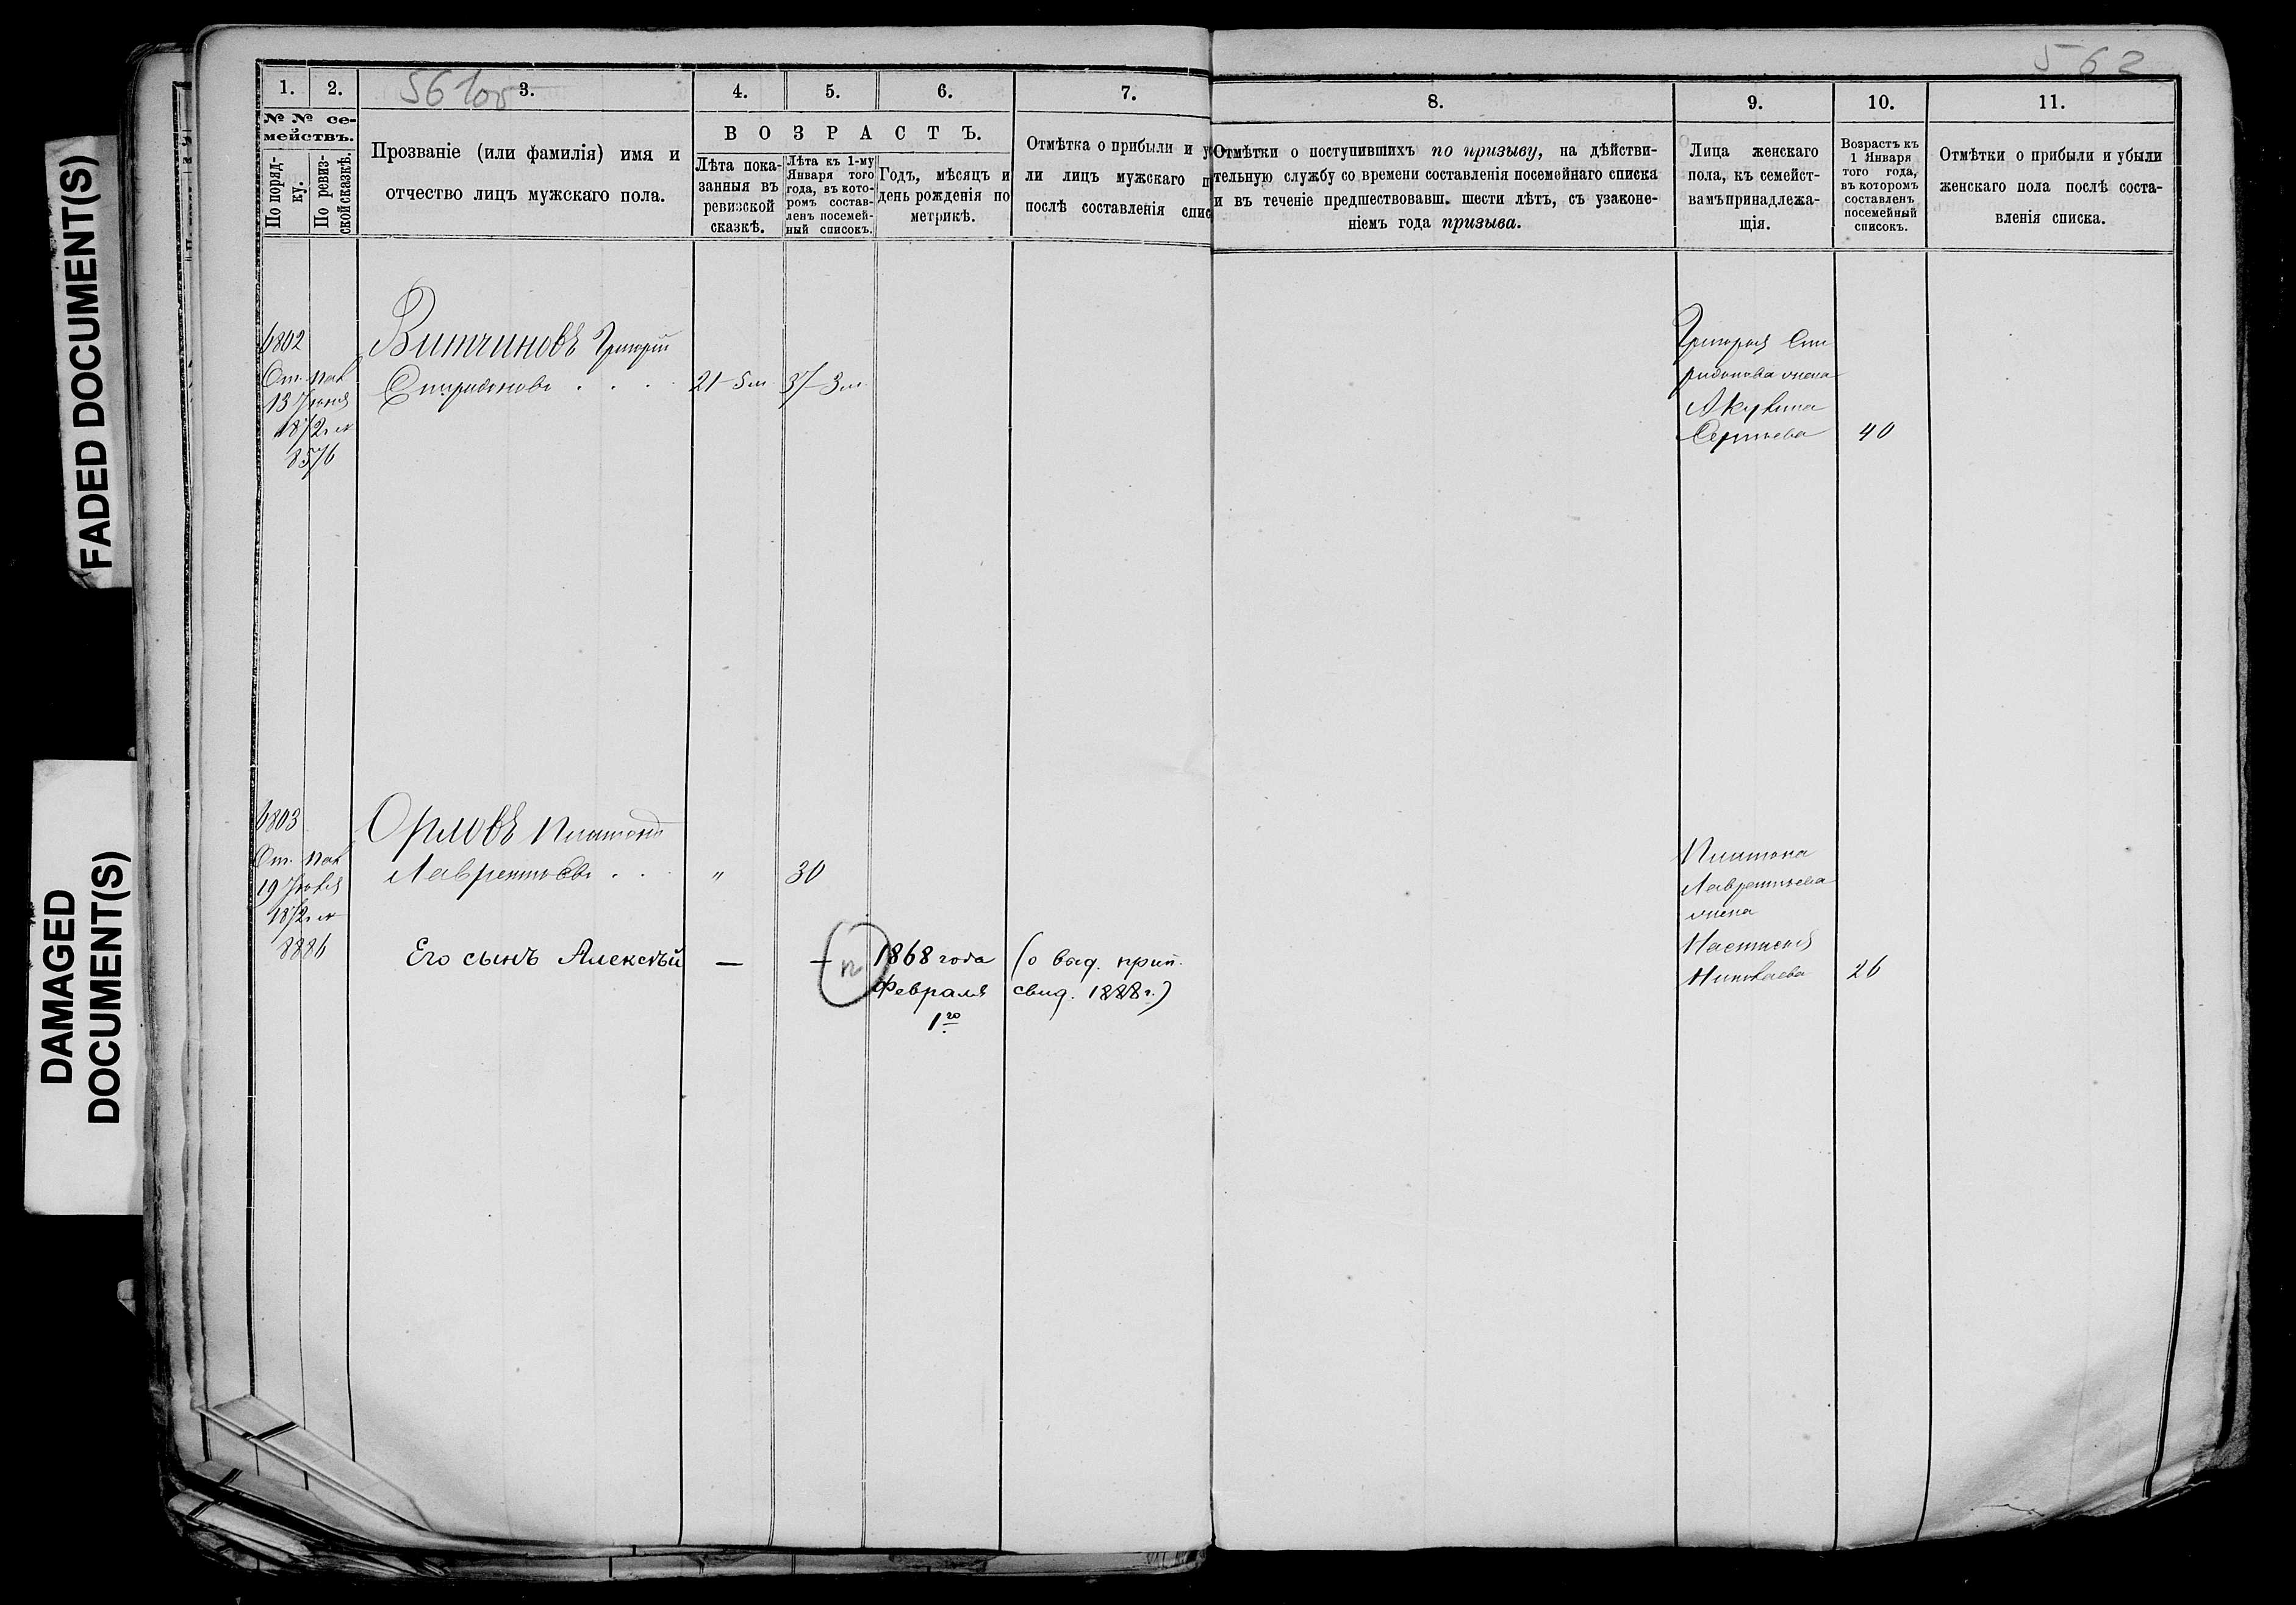 FADED DOCUMENT(S)
DAMAGED
DOCUMENT(S)
561об
562
1.
2.
3.
4.
5.
6.
7.
8.
9.
10.
11.
№ № се-
мействъ.
По поряд-
ку.
По ревиз-
ской сказкѣ.
Прозваніе (или фамилія) имя и
отчество лицъ мужскаго пола.
ВОЗРАСТЪ.
Лѣта пока-
занныя въ
ревизской
сказкѣ.
Лѣта къ 1-му
Января того
года, въ кото-
ромъ состав-
ленъ посемей-
ный списокъ.
Годъ, мѣсяцъ и
день рожденія по
метрикѣ.
Отмѣтка о прибыли и у
ли лицъ мужскаго п
послѣ составленія спис
Отмѣтки о поступившихъ по призыву, на дѣйстви-
тельную службу со времени составленія посемейнаго списка
и въ теченіе предшествовавш. шести лѣтъ, съ узаконе-
ніемъ года призыва.
Лица женскаго
пола, къ семейст-
вамъ принадлежа-
щія.
Возрастъ къ
1 Января
того года,
въ которомъ
составленъ
посемейный
списокъ.
Отмѣтки о прибыли и убыли
женскаго пола послѣ соста-
вленія списка.
6802
13 Іюня
1872 г. №
8576
Витчиновъ Григорій
Спиридоновъ . . .
21-5м
37-3м
Григорья Спи
ридонова жена
Акулина
Сергѣева
40
6803
19 Іюня
1872 г. №
8886
Орловъ Платонъ
Лаврентьевъ . .
„
30
Его сынъ Алексѣй
—
—
п
1868 года
Февраля
1го
(о выд. прип.
свид. 1888 г.)
Платона
Лаврентьева
жена
Настасья
Николаева
26